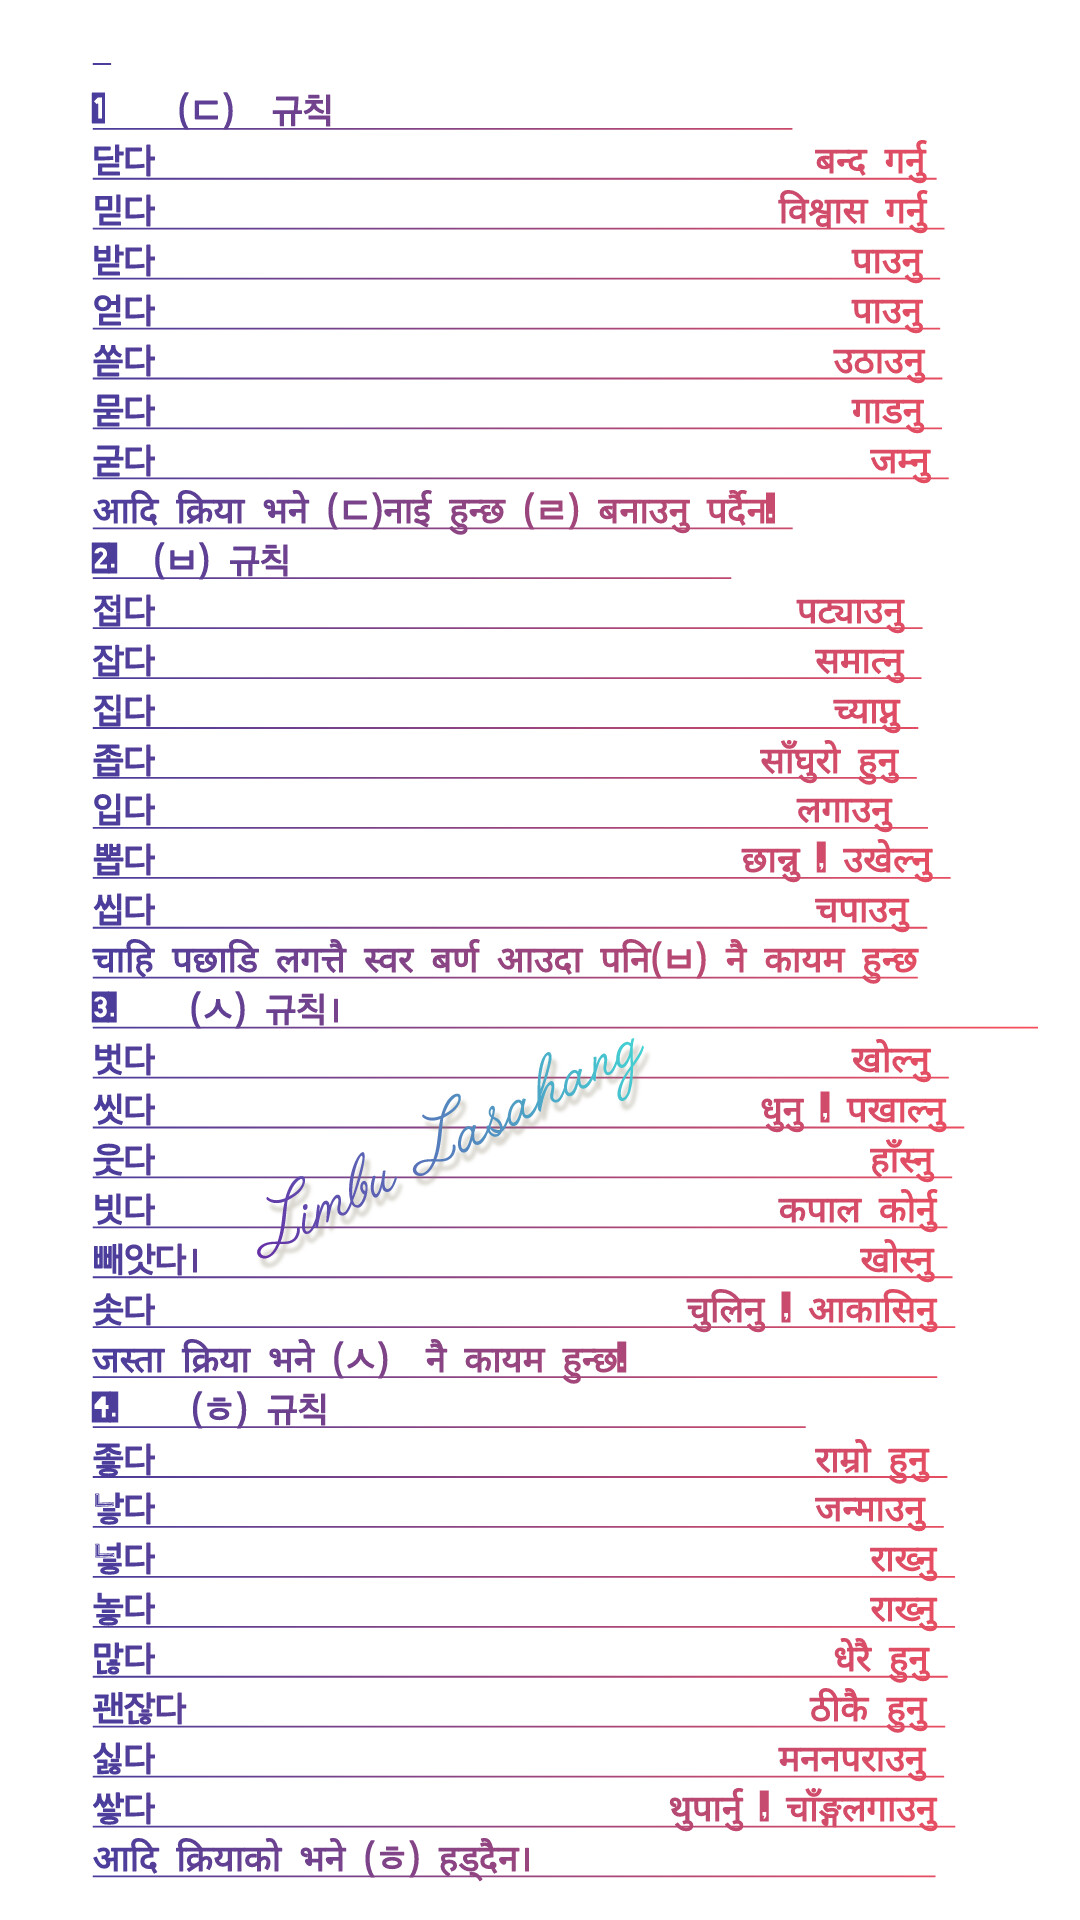 1 (ㄷ) 규칙
닫다 बन्द गर्नु
믿다 विश्वास गर्नु
받다 पाउनु
얻다 पाउनु
쏟다 उठाउनु
묻다 गाडनु
굳다 जम्नु
आदि क्रिया भने (ㄷ)नाई हुन्छ (ㄹ) बनाउनु पर्दैन!
2. (ㅂ) 규칙
접다 पट्याउनु
잡다 समात्नु
집다 च्याप्नु
좁다 साँघुरो हुनु
입다 लगाउनु
뽑다 छान्नु , उखेल्नु
씹다 चपाउनु
चाहि पछाडि लगत्तै स्वर बर्ण आउदा पनि(ㅂ) नै कायम हुन्छ
3. (ㅅ) 규칙।
벗다 खोल्नु
씻다 धुनु , पखाल्नु
웃다 हाँस्नु
빗다 कपाल कोर्नु
빼앗다। खोस्नु
솟다 चुलिनु , आकासिनु
जस्ता क्रिया भने (ㅅ) नै कायम हुन्छ!
4. (ㅎ) 규칙
좋다 राम्रो हुनु
낳다 जन्माउनु
넣다 राख्नु
놓다 राख्नु
많다 धेरै हुनु
괜찮다 ठीकै हुनु
싫다 मननपराउनु
쌓다 थुपार्नु , चाँङ्गलगाउनु
आदि क्रियाको भने (ㅎ) हड्दैन।
Limbu Lasahang